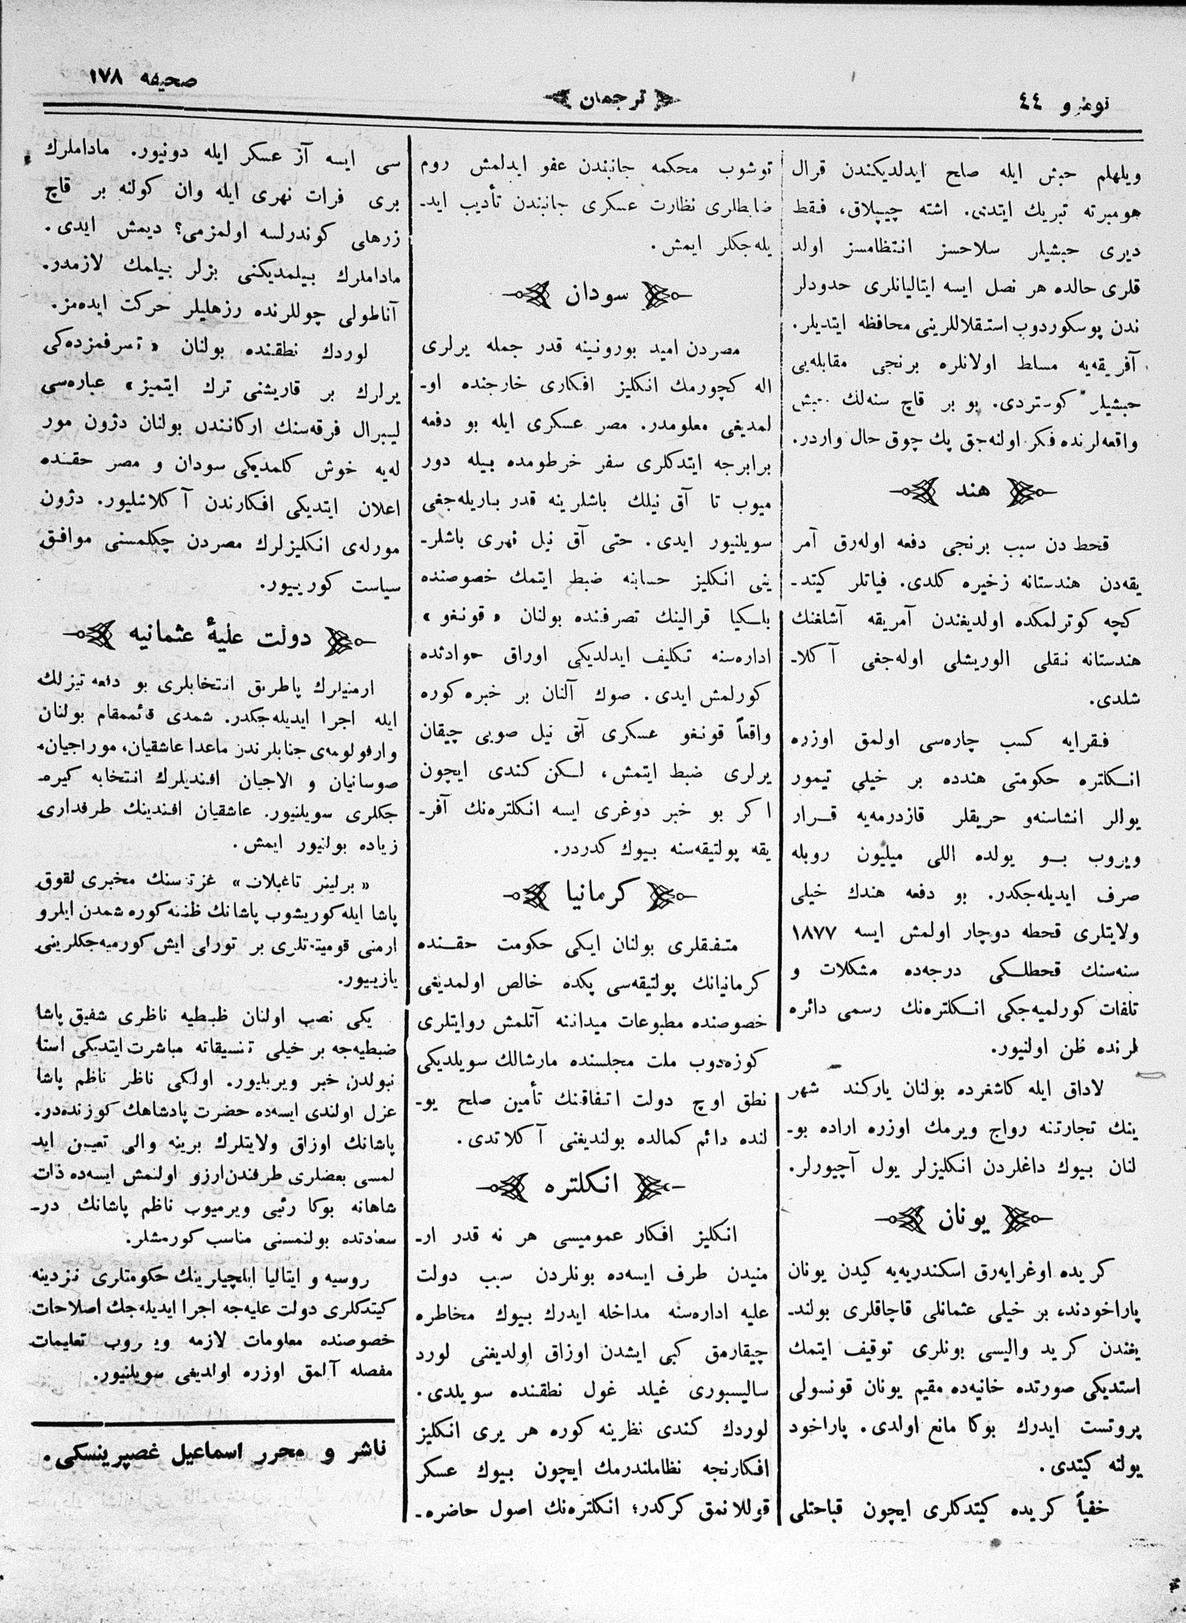 نومرو ٤٤
ترجمان
صحیفه ١٧٨
ویلهلم حبش ایله صلح ایدلدیکندن قرال
هومبرته تبریك ایتدی. اشته چیپلاق، فقط
دیری حبشیلر سلاحسز انتظامسز اولد
قلری حالده هر نصل ایسه ایتالیانلری حدودلر
ندن پوسکوردوب استقلاللرینی محافظه ایتدیلر.
آفریقه‌یه مسلط اولانلره برنجی مقابله‌یی
حبشیلر کوستردی. بو بر قاچ سنه‌لك حبش
واقعه‌لرنده فکر اولنه‌جق پك چوق حال واردر.
هند
قحط دن سبب برنجی دفعه اوله‌رق آمر
یقه‌دن هندستانه زخیره کلدی. فیاتلر کیتد-
کچه کوترلمکده اولدیغندن آمریقه آشلغنك
هندستانه نقلی الوریشلی اوله‌جغی آکلا-
شلدی.
فقرایه کسب چاره‌سی اولمق اوزره
انکلتره حکومتی هندده بر خیلی تیمور
یوالر انشاسنه‌و حریقلر قازدرمه‌یه قرار
ویروب بو یولده اللی میلیون روبله
صرف ایدیله‌جکدر. بو دفعه هندك خیلی
ولایتلری قحطه دوچار اولمش ایسه ١٨٧٧
سنه‌سنك قحطلکی درجه‌ده مشکلات و
تلفات کورلمیه‌جکی انکلتره‌نك رسمی دائره
لرنده ظن اولنیور.
لاداق ایله کاشغرده بولنان یارکند شهر
ینك تجارتنه رواج ویرمك اوزره اراده بو-
لنان بیوك داغلردن انکلیزلر یول آچیورلر.
یونان
کریده اوغرایه‌رق اسکندریه‌یه کیدن یونان
پاراخودند، بر خیلی عثمانلی قاچاقلری بولند-
یغندن کرید والیسی بونلری توقیف ایتمك
استدیکی صورتده خانیه‌ده مقیم یونان قونسولی
پروتست ایدرك بوکا مانع اولدی. پاراخود
یولنه کیتدی.
خفیاً کریده کیتدکلری ایچون قباحتلی
توشوب محکمه جانبندن عفو ایدلمش روم
ضابطلری نظارت عسکری جانبندن تأدیب اید-
یله‌جکلر ایمش.
سودان
مصردن امید بورونینه قدر جمله یرلری
اله کچورمك انکلیز افکاری خارجنده او-
لمدیغی معلومدر. مصر عسکری ایله بو دفعه
برابرجه ایتدکلری سفر خرطومده بیله دور
میوب تا آق نیلك باشلرینه قدر باریله‌جغی
سویلنیور ایدی. حتی آق نیل نهری باشلر-
ینی انکلیز حسابنه ضبط ایتمك خصوصنده
بلسکیا قرالینك تصرفنده بولنان «قونغو»
اداره‌سنه تکلیف ایدلدیکی اوراق حوادثده
کورلمش ایدی. صوك آلنان بر خبره کوره
واقعاً قونغو عسکری آق نیل صویی چیقان
یرلری ضبط ایتمش، لکن کندی ایچون
اکر بو خبر دوغری ایسه انکلتره‌نك آفر-
یقه پولتیقه‌سنه بیوك کدردر.
کرمانیا
متفقلری بولنان ایکی حکومت حقنده
کرمانیانك پولتیقه‌سی پکده خالص اولمدیغی
خصوصنده مطبوعات میداننه آتلمش روایتلری
کوزه‌دوب ملت مجلسنده مارشالك سویلدیکی
نطق اوچ دولت اتفاقنك تأمین صلح یو-
لنده دائم کمالده بولندیغنی آکلاتدی.
انکلتره
انکلیز افکار عمومیسی هر نه قدر ار-
منیدن طرف ایسه‌ده بونلردن سبب دولت
علیه اداره‌سنه مداخله ایدرك بیوك مخاطره
چیقارمق کبی ایشدن اوزاق اولدیغنی لورد
سالیسبوری غیلد غول نطقنده سویلدی.
لوردك کندی نظرینه کوره هر یری انکلیز
افکارنجه نظاملندرمك ایچون بیوك عسکر
قوللانمق کرکدر؛ انکلتره‌نك اصول حاضره-
سی ایسه آز عسکر ایله دونیور. ماداملرك
بری فرات نهری ایله وان کولنه بر قاچ
زرهلی کوندرلسه اولمزمی؟ دیمش ایدی.
ماداملرك بیلمدیکنی بزلر بیلمك لازمدر.
آناطولی چوللرنده رزهلیلر حرکت ایده‌مز.
لوردك نطقنده بولنان «تسرفمزده‌کی
یرلرك بر قاریشنی ترك ایتمیز» عباره‌سی
لیبرال فرقه‌سنك ارکانندن بولنان دژون مور
له‌یه خوش کلمدیکی سودان و مصر حقنده
اعلان ایتدیکی افکارندن آکلاشلیور. دژون
مورله‌ی انکلیزلرك مصردن چکلمسنی موافق
سیاست کوریپور.
دولت علیهٔ عثمانیه
ارمنیلرك پاطریق انتخابلری بو دفعه تیزلك
ایله اجرا ایدیله‌جکدر. شمدی قائممقام بولنان
وارفولومه‌ی جنابلرندن ماعدا عاشقیان، موراجیان،
صوسانیان و الاجیان افندیلرك انتخابه کیره-
جکلری سویلنیور. عاشقیان افندینك طرفداری
زیاده بولنیور ایمش.
«برلینر تاغبلات» غزته‌سنك مخبری لقوق
پاشا ایله کوریشوب پاشانك ظننه کوره شمدن ایلرو
ارمنی قومیته‌تلری بر تورلی ایش کورمیه‌جکلرینی
یازیپور.
یکی نصب اولنان ظبطیه ناظری شفیق پاشا
ضبطیه‌جه بر خیلی تنسیقاته مباشرت ایتدیکی استا
نبولدن خبر ویریلیور. اولکی ناظر ناظم پاشا
عزل اولندی ایسه‌ده حضرت پادشاهك کوزنده‌در.
پاشانك اوزاق ولایتلرك برینه والی تعیین اید
لمسی بعضلری طرفندن ارزو اولنمش ایسه‌ده ذات
شاهانه بوکا رئیی ویرمیوب ناظم پاشانك در-
سعادتده بولنمسنی مناسب کورمشلر.
روسیه و ایتالیا ایلچیلرینك حکومتلری نزدینه
کیتدکلری دولت علیه‌جه اجرا ایدیله‌جك اصلاحات
خصوصنده معلومات لازمه ویروب تعلیمات
مفصله آلمق اوزره اولدیغی سویلنیور.
ناشر و محرر اسماعیل غصپرینسکی.